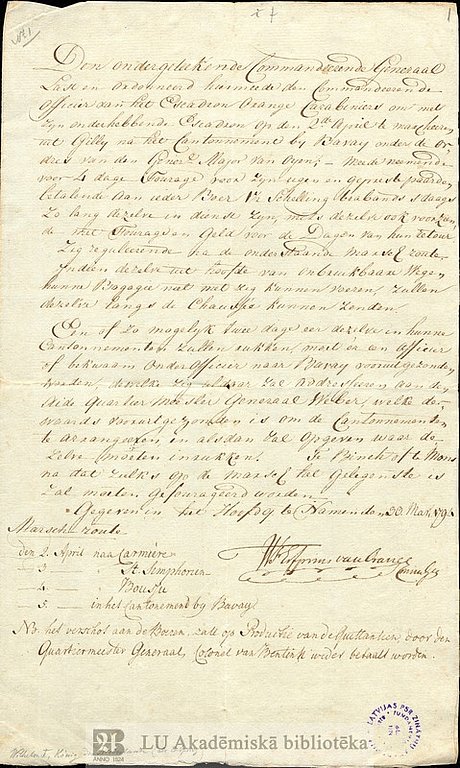 Den ondergetekende Commandeerende Generaal
Last en ordonneerd hiermeede den Commandeerende
officier van het Escadron Orange Carabeniers om met
zyn onderhebbende Escadron op den 2de April te marscheeren
uit Gilly na het Cantonnement by Bavay onder de or
dres van den Gener: Major van Oyen; meede neemende
voor 4 dage Fourage voor zyn eigen en gepreste paarden
betalende aan ieder Boer Schelling brabands sdaags
zo lang dezelve in dienst zyn, mits dezelve ook voorzien
de met Fourage en Geld voor de Dagen van hun retour
zig reguleerende na de onderstaande Marsch route.
Indien dezelve uit hoofde van onbruikbaare Wegen
hunne Bagagie niet met zig kunnen voeren, zullen
dezelve langs de Chaussée kunnen zenden.
Een of zo mogelyk twee dage eer dezelve in hunne
Cantonnementen zullen rukken, moet er een officier
of bekwaam onder officier naar Bavay vooruitgezonden
worden, dewelke zig aldaar zal adresseeren aan den
Quartier Meester Generaal Weber, welke der
waards vooruitgezonden is om de Cantonnementen
te arrangeeren en alsdan zal opgeven waar de
zelve moeten inrukken. Te Binch of te Mons
na dat zulks op de marsch het gelegenste is
zal moeten gefourageerd worden.
Gegeven in het Hoofdq: te Namen den 30 Mart 179
Marsch route
den 2. April naa Carnière
" 3 " St. Simphorien
" 4 " Boussu
" 5 " in het cantonement by Bavay
NB. het verschot aan de Boeren zall op Productie van de Quittantien, door den
Quartiermeester Generaal, Colonel van Bentink weder betaalt worden.
LATVIJAS PSR ZINĀTŅU
LU Akadēmiskā bibliotēka
ANNO 1524